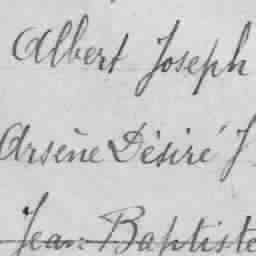 Albert Joseph
Arsène Désiré J
Jean-Baptiste